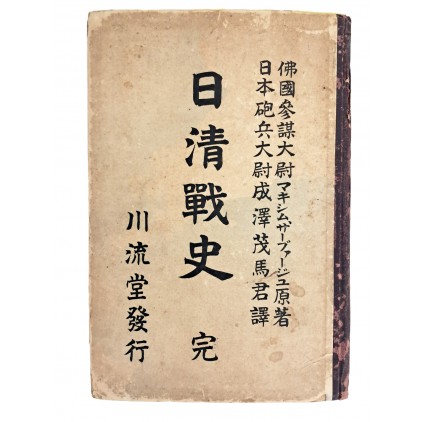 佛國參謀大尉マキシム、ザーヴァージュ原著
日本砲兵大尉成澤茂馬君譯
日清戰史 完
川流堂發行